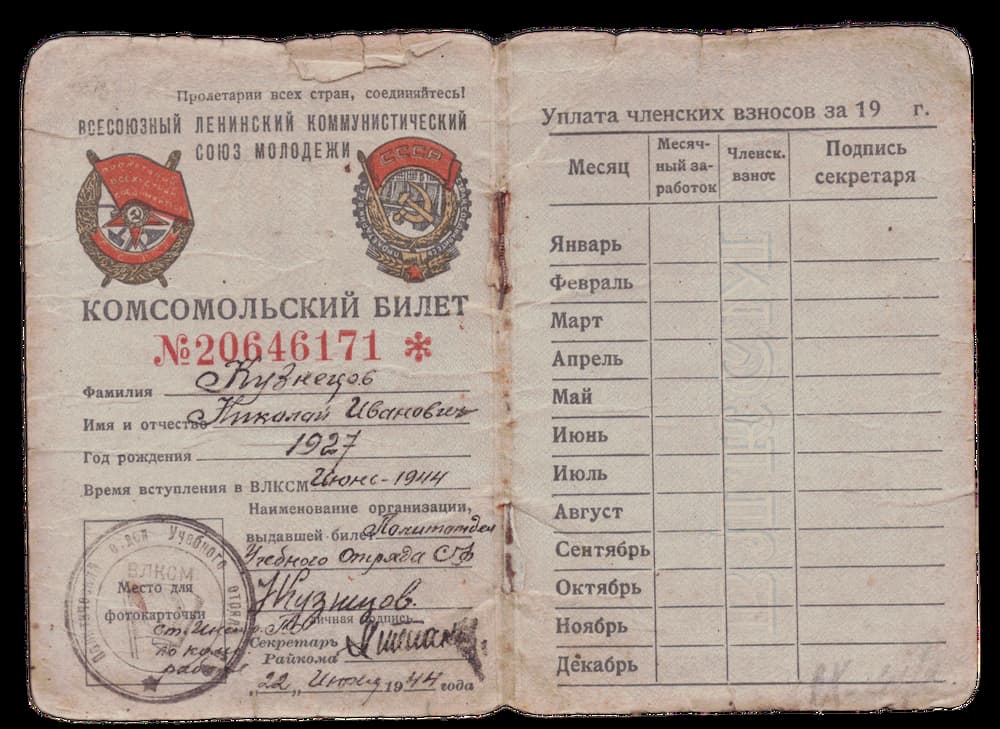 Пролетарии всех стран, соединяйтесь!
ВСЕСОЮЗНЫЙ ЛЕНИНСКИЙ КОММУНИСТИЧЕСКИЙ
СОЮЗ МОЛОДЕЖИ
СССР
КОМСОМОЛЬСКИЙ БИЛЕТ
№20646171 *
Фамилия Кузнецов
Имя и отчество Николай Иванович
Год рождения 1927
Время вступления в ВЛКСМ Июнь-1944
Наименование организации,
выдавшей билет Политотдел
Учебного Отряда СФ
Кузнецов.
Личная подпись
Секретарь
Райкома
„22„ Июня 1944 года
Учебного отряда
ВЛКСМ
Место для
фотокарточки
по ком
работе
Уплата членских взносов за 19 г.
Месяц
Месяч-
ный за-
работок
Членск.
взнос
Подпись
секретаря
Январь
Февраль
Март
Апрель
Май
Июнь
Июль
Август
Сентябрь
Октябрь
Ноябрь
Декабрь